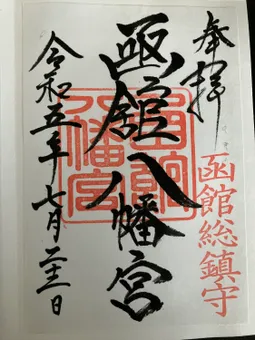 奉拝
函館総鎮守
函館八幡宮
函館八幡宮
令和五年七月二十一日